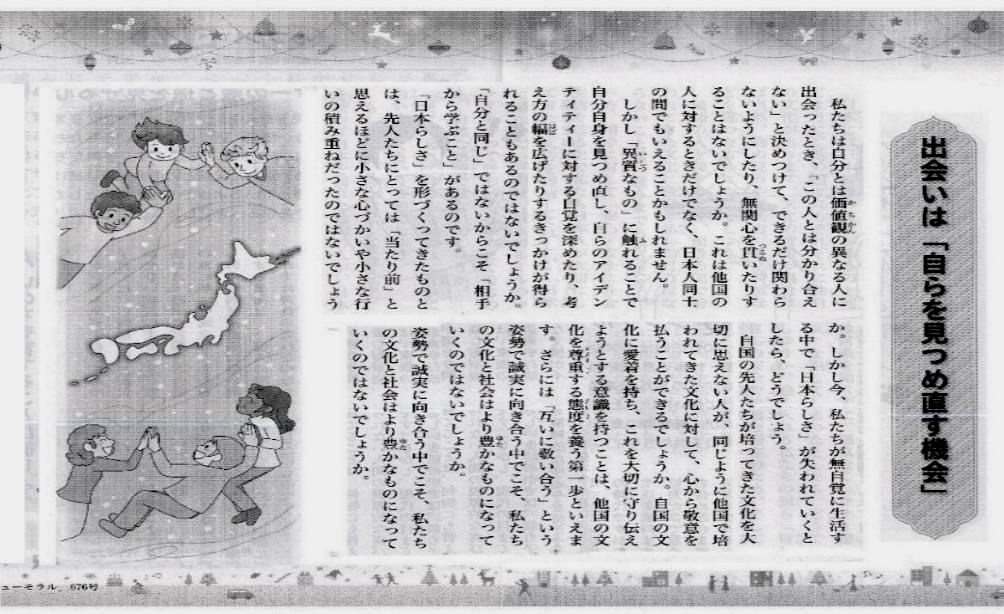 出会いは「自らを見つめ直す機会」
私たちは自分とは価値観の異なる人に
出会ったとき、「この人とは分かり合え
ない」と決めつけて、できるだけ関わら
ないようにしたり、無関心を貫いたりす
ることはないでしょうか。これは他国の
人に対するときだけでなく、日本人同士
の間でもいえることかもしれません。
しかし「異質なもの」に触れることで
自分自身を見つめ直し、自らのアイデン
ティティーに対する自覚を深めたり、考
え方の幅を広げたりするきっかけが得ら
れることもあるのではないでしょうか。
「自分と同じ」ではないからこそ「相手
から学ぶこと」があるのです。
「日本らしさ」を形づくってきたものと
は、先人たちにとっては「当たり前」と
思えるほどに小さな心づかいや小さな行
いの積み重ねだったのではないでしょう
か。しかし今、私たちが無自覚に生活す
る中で「日本らしさ」が失われていくと
したら、どうでしょう。
自国の先人たちが培ってきた文化を大
切に思えない人が、同じように他国で培
われてきた文化に対して、心から敬意を
払うことができるでしょうか。自国の文
化に愛着を持ち、これを大切に守り伝え
ようとする意識を持つことは、他国の文
化を尊重する態度を養う第一歩といえま
す。さらには「互いに敬い合う」という
姿勢で誠実に向き合う中でこそ、私たち
の文化と社会はより豊かなものになって
いくのではないでしょうか。
姿勢で誠実に向き合う中でこそ、私たち
の文化と社会はより豊かなものになって
いくのではないでしょうか。
ューモラル」676号